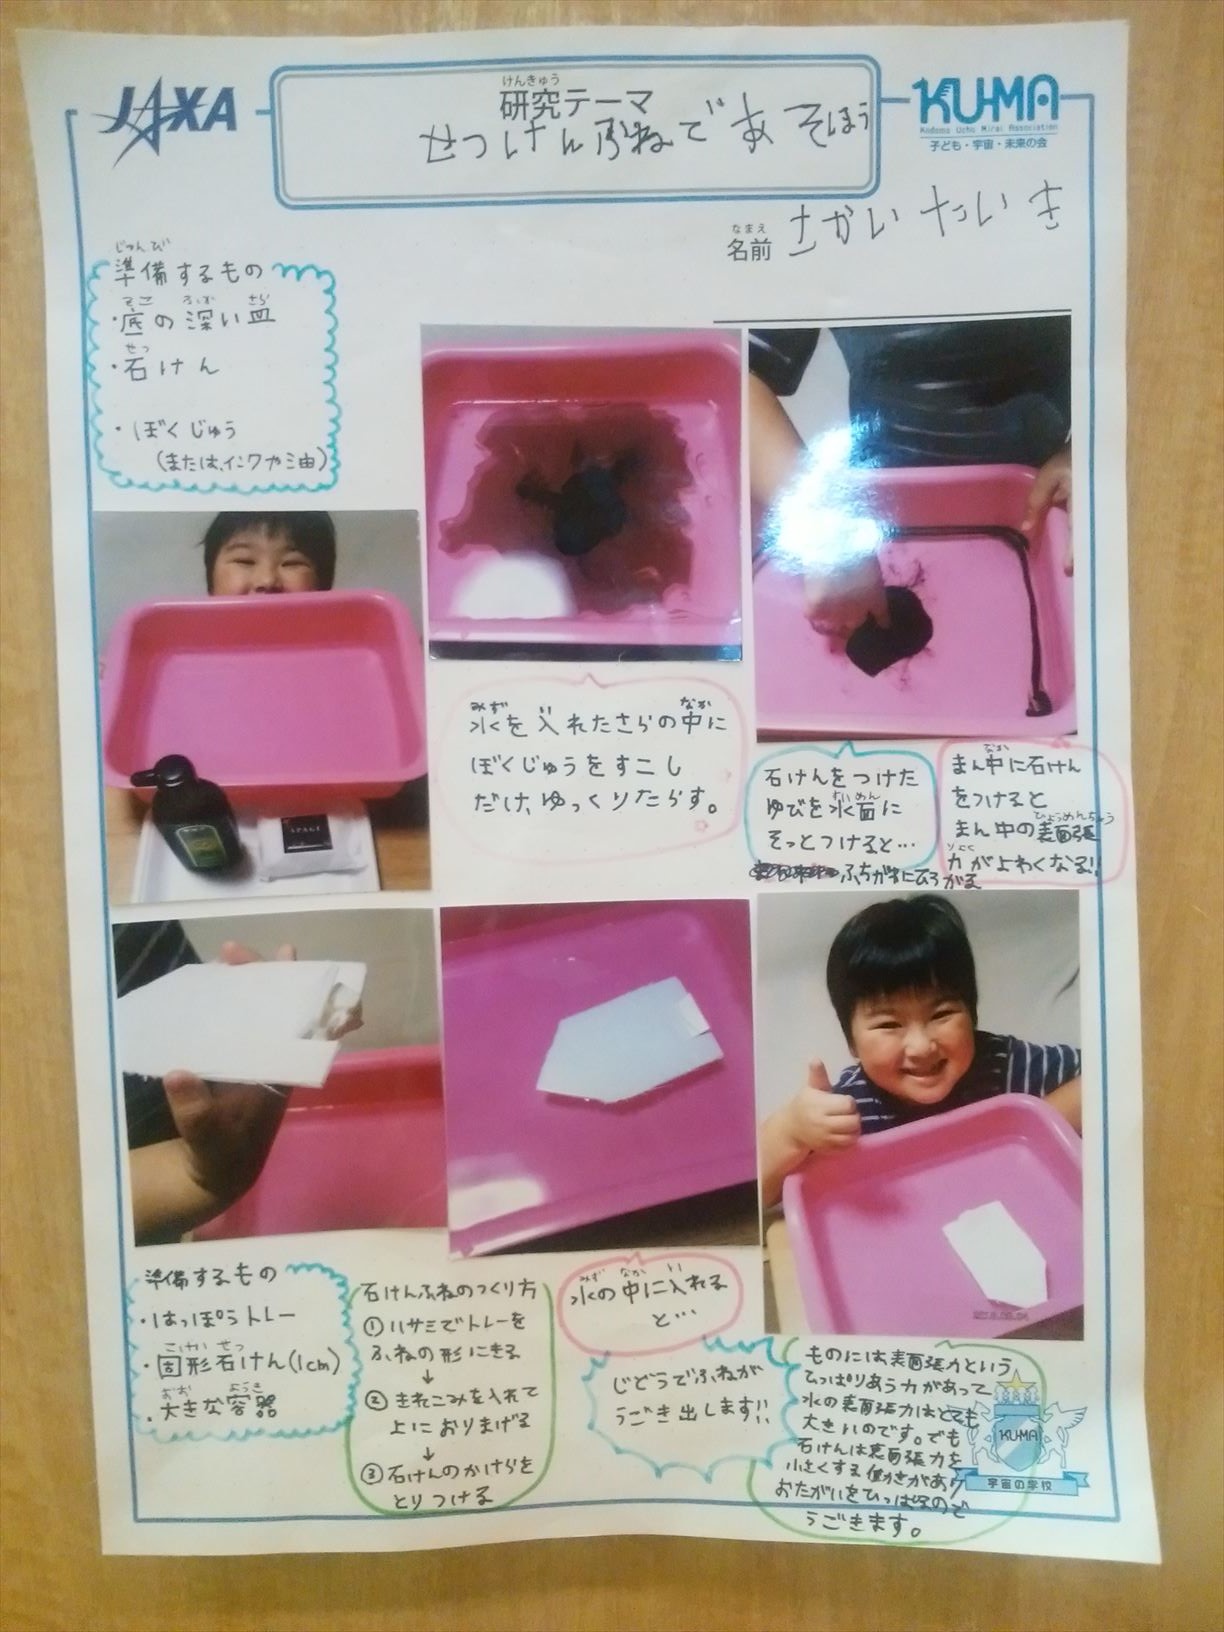 JAXA
けんきゅう
研究テーマ
せっけんふねであそぼう
KU-MA
Kodomo Uchu Mirai Association
子ども・宇宙・未来の会
なまえ
名前 さかい たいき
じゅんび
準備するもの
そこ ふか さら
・底の深い皿
せっ
・石けん
・ぼくじゅう
(または、インクや油)
みず なか
水を入れたさらの中に
ぼくじゅうをすこし
だけ、ゆっくりたらす。
石けんをつけた
すいめん
ゆびを水面に
そっとつけると…
ふちがわにひろがる
なか
まん中に石けん
をつけると
ひょうめんちょう
まん中の表面張
りょく
力がよわくなる!!
準備するもの
・はっぽうトレー
こけい せっ
・固形石けん(1cm)
おお ようき
・大きな容器
石けんふねのつくり方
①ハサミでトレーを
ふねの形にきる
↓
②きれこみを入れて
上におりまげる
↓
③石けんのかけらを
とりつける
みず なか い
水の中に入れる
と…
じどうでふねが
うごき出します!!
ものには表面張力という
ひっぱりあう力があって
水の表面張力はとても
大きいのです。でも
石けんは表面張力を
小さくする働きがあり
おたがいをひっぱるので
うごきます。
KUMA
宇宙の学校